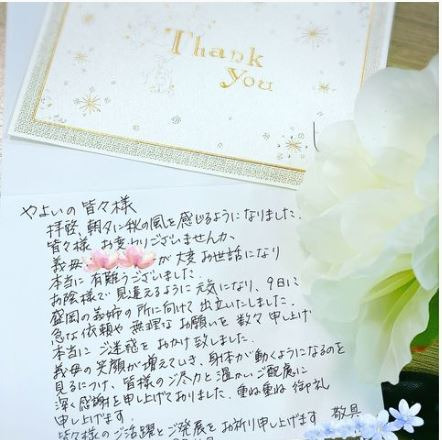 Thank
You
やよいの皆々様
拝啓、朝夕に秋の風を感じるようになりました。
皆々様 お変わりございませんか。
義母 が大変お世話になり
本当に有難うございました。
お陰様で見違えるように元気になり、9日に
盛岡の義姉の所に向けて出立いたしました。
急な依頼や無理なお願いを数々申し上げ
本当にご迷惑をおかけ致しました。
義母の笑顔が増えていき、身体が動くようになるのを
見るにつけ、皆様のご尽力と温かいご配慮に
深く感謝を申し上げておりました。重ね重ね御礼
申し上げます。
皆々様のご活躍とご発展をお祈り申し上げます 敬具